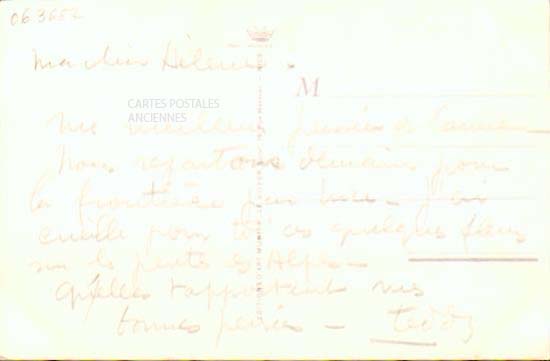 063652
Ma chère Hélène.
M
CARTES POSTALES
ANCIENNES
Mes meilleures pensées de
Nous repartons demain pour
la frontière par J'ai
cueilli pour toi ces quelques fleurs
sur les pentes des Alpes—
Qu'elles t'apportent mes
bonnes pensées — Teddy